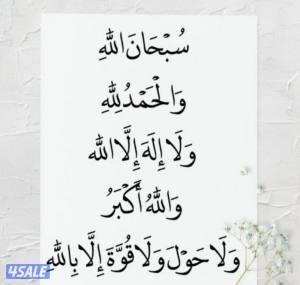 سُبْحَانَ اللَّهِ
وَالْحَمْدُ لِلَّهِ
وَلَا إِلَهَ إِلَّا اللَّه
وَاللَّهُ أَكْبَرُ
وَلَا حَوْلَ وَلَا قُوَّةَ إِلَّا بِاللَّهِ
4SALE